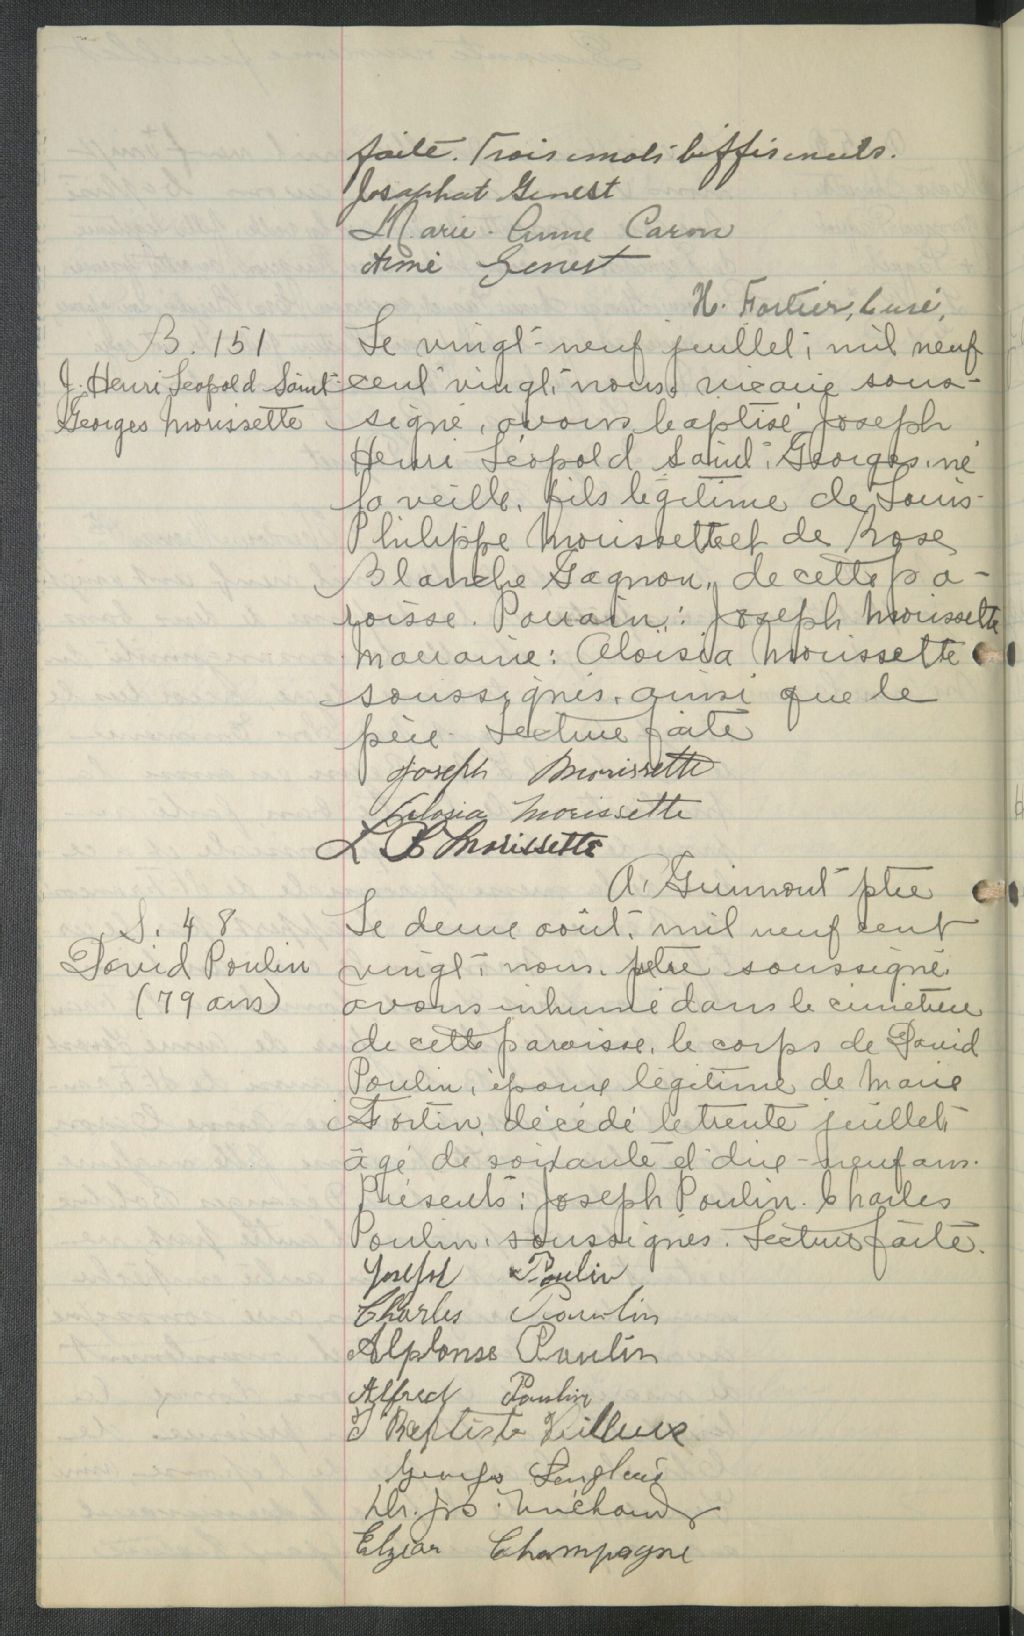 faite. Trois mots biffés nuls.
Josaphat Genest
Marie-Anne Caron
Aimé Genest
H. Fortier, Curé,
B. 151
J. Henri Léopold Saint
Georges Morissette
Le vingt-neuf juillet, mil neuf
cent vingt, nous, vicaire sous-
signé, avons baptisé Joseph
Henri Léopold Saint-Georges, né
la veille, fils légitime de Louis-
Philippe Morissette et de Rose
Blanche Gagnon, de cette pa-
roisse. Parrain: Joseph Morissette
marraine: Aloisia Morissette
soussignés, ainsi que le
père. Lecture faite
Joseph Morissette
Alosia Morissette
L P Morissette
A. Guimont ptre
S. 48
David Poulin
(79 ans)
Le deux août, mil neuf cent
vingt, nous, ptre soussigné
avons inhumé dans le cimetière
de cette paroisse, le corps de David
Poulin, époux légitime de Marie
Fortin, décédé le trente juillet,
âgé de soixante et dix-neuf ans.
Présents: Joseph Poulin. Charles
Poulin, soussignés. Lecture faite.
Joseph Poulin
Charles Poulin
Alphonse Poulin
Alfred Poulin
J Baptiste Veilleux
Georges Langlais
Dr. Jos. Michaud
Elzéar Champagne